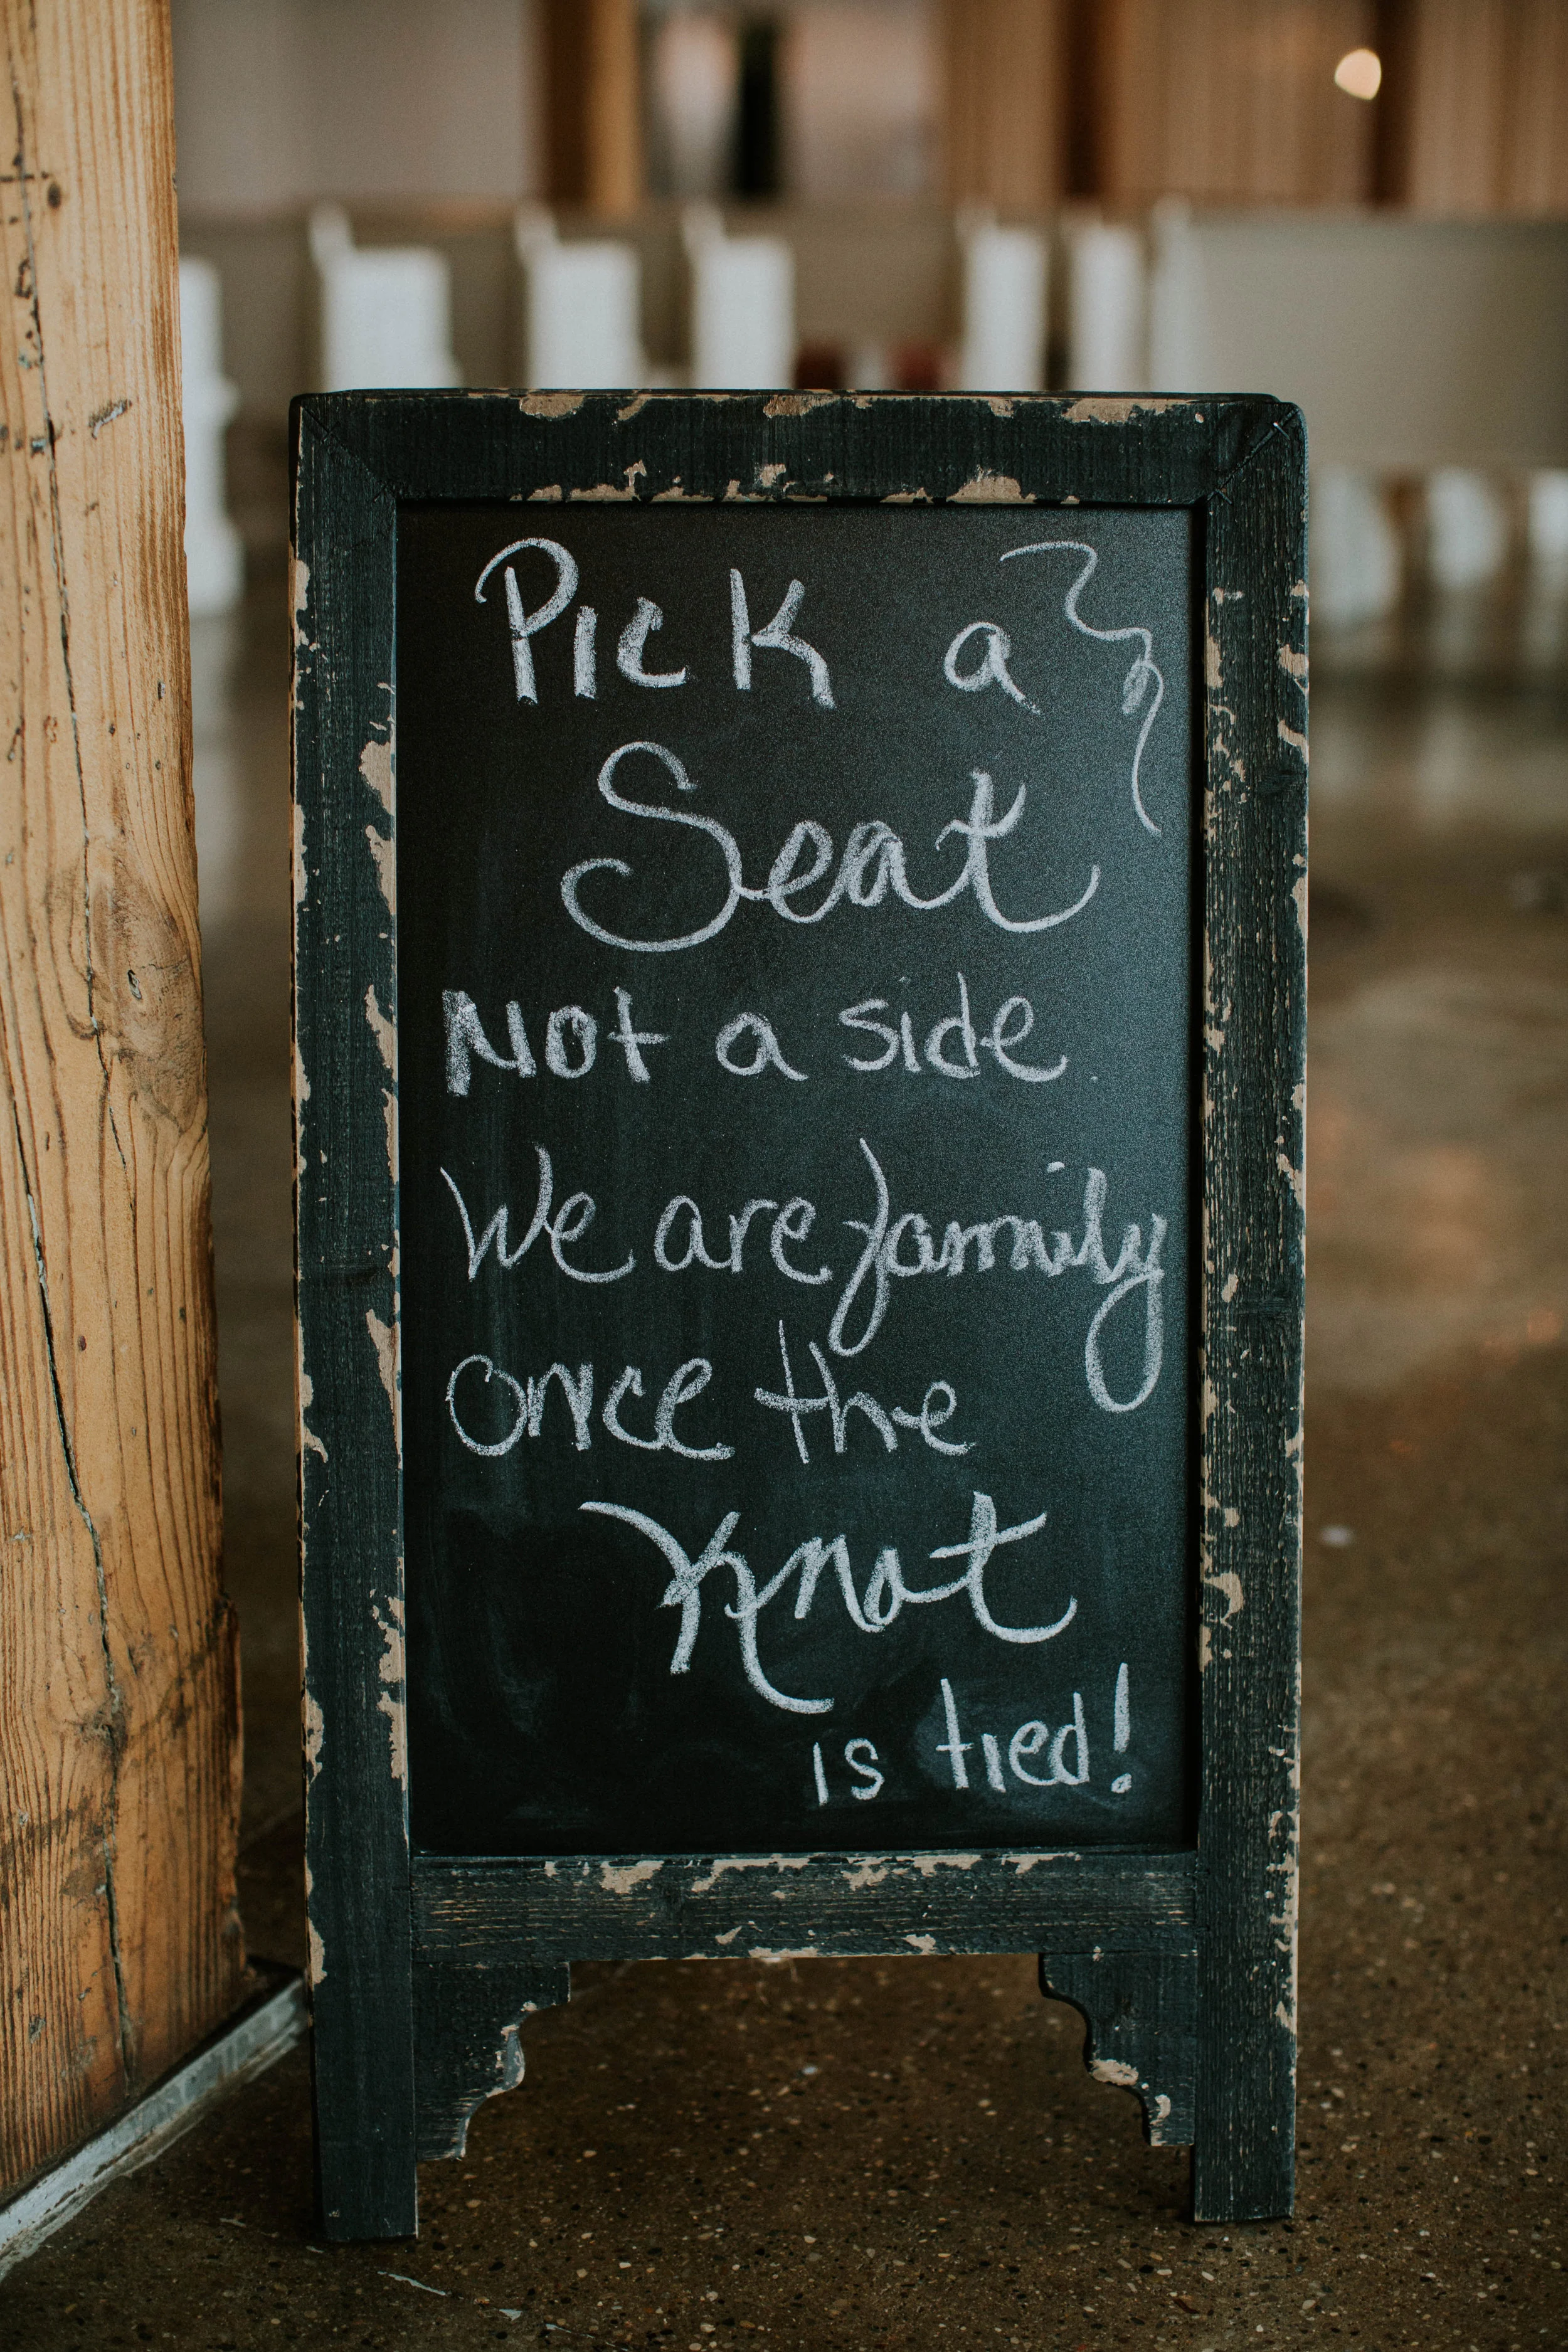 Pick a
Seat
Not a side
We are family
once the
Knot
is tied!